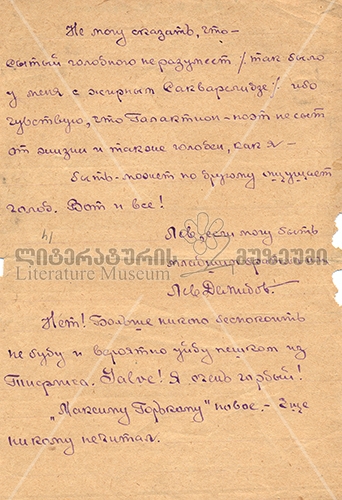 Не могу сказать, что-
сытый голодного не разумеет / так было
у меня с жирным Сакварелидзе / ибо
чувствую, что Галактион - поэт не сыт
от жизни и также голоден, как я -
быть-может по другому ощущает
голод. Вот и все!
14
Лев, если могу быть
ლიტერატურის მუზეუმი
Literature Museum
Лев Демидов.
Нет! Больше никого беспокоить
не буду и вероятно уйду пешком из
Тифлиса. Salve! Я очень гордый!
„Максиму Горькому" новое. - Еще
никому не читал.